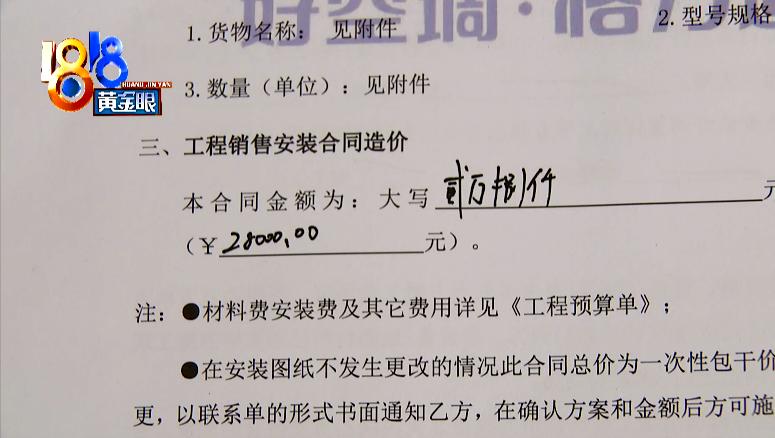 好空调·格
1.货物名称： 见附件
2.型号规格
1818
HUANG JIN YAN
黄金眼
3.数量（单位）：见附件
三、工程销售安装合同造价
本合同金额为：大写 贰万捌仟 元
（￥28000.00 元）。
注：●材料费安装费及其它费用详见《工程预算单》；
●在安装图纸不发生更改的情况此合同总价为一次性包干价
更，以联系单的形式书面通知乙方，在确认方案和金额后方可施